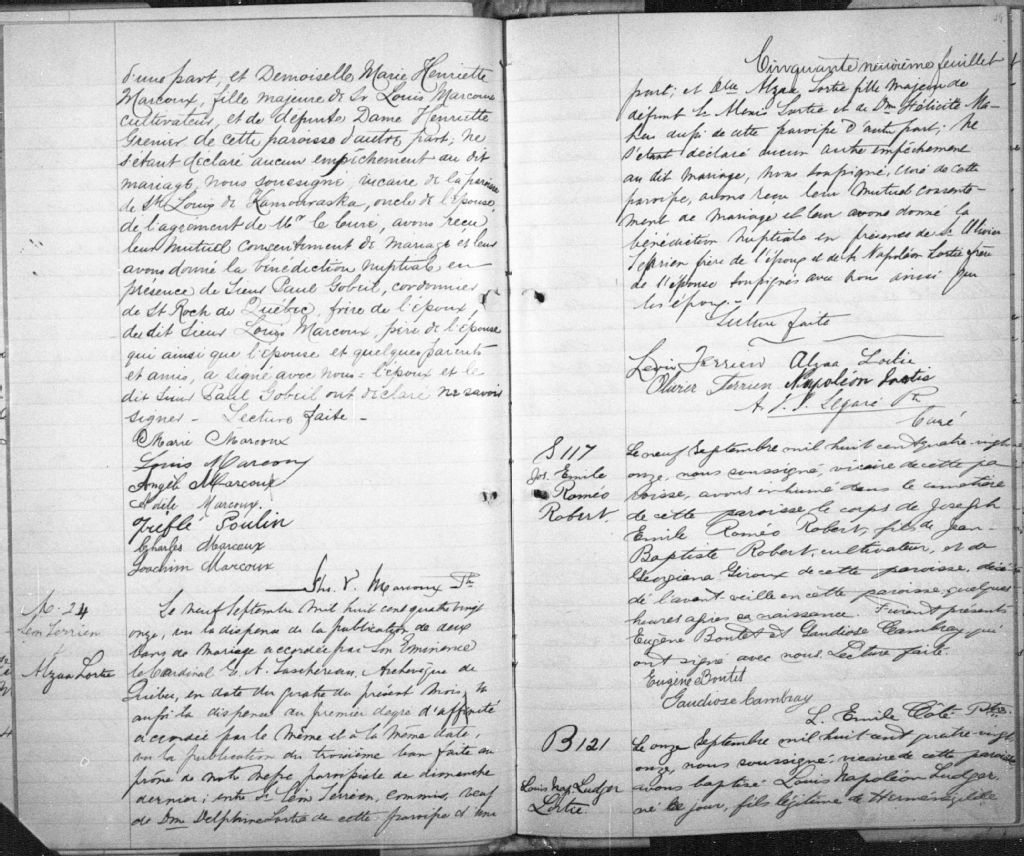 d'une part, et Demoiselle Marie Henriette
Marcoux, fille majeure de Sr Louis Marcoux
cultivateur, et de défunte Dame Henriette
Grenier de cette paroisse d'autre part; ne
s'étant déclaré aucun empêchement au dit
mariage, nous soussigné, vicaire de la paroisse
de St. Louis de Kamouraska, oncle de l'épouse,
de l'agrément de Mr le Curé, avons reçu
leur mutuel consentement de mariage et leur
avons donné la bénédiction nuptiale en
présence de Sieur Paul Gobeil, cordonnier,
de St Roch de Québec, frère de l'époux,
du dit Sieur Louis Marcoux, père de l'épouse
qui ainsi que l'épouse et quelques parents
et amis, a signé avec nous - l'époux et le
dit Sieur Paul Gobeil ont déclaré ne savoir
signer - Lecture faite -
Marie Marcoux
Louis Marcoux
Angèle Marcoux
Marcoux
Treflé Poulin
Charles Marcoux
Joachim Marcoux
Ths. V. Marcoux Ptre
M. 24
Léon Terrien
Alzaa Lortie
Le neuf Septembre mil huit cent quatre vingt
onze, vu la dispense de la publication de deux
bans de mariage accordée par Son Eminence
le Cardinal E. A. Taschereau, Archevêque de
Québec, en date du quatre du présent mois, vu
aussi la dispense au premier degré d'affinité
accordée par le même et à la même date,
vu la publication du troisième ban faite au
prône de notre messe paroissiale de dimanche
dernier; entre Sr Léon Terrien, commis, veuf
de Dme Delphine Lortie de cette paroisse d'une
Cinquante neuvième feuillet
part; et Dlle Alzaa Lortie fille majeure de
défunt Sr Lortie et de Dme Félicité
aussi de cette paroisse d'autre part; Ne
s'étant déclaré aucun autre empêchement
au dit mariage, Nous soussigné, Curé de cette
paroisse, avons reçu leur mutuel consente-
ment de mariage et leur avons donné la
bénédiction nuptiale en présence de Sr Olivier
Terrien frère de l'époux et de Sr Napoléon Lortie frère
de l'épouse soussignés avec nous ainsi que
les époux. -
Lecture faite
Léon Terrien Alzaa Lortie
Olivier Terrien Napoléon Lortie
Légaré Ptre
Curé
S 117
Jos. Emile
Roméo
Robert.
Le neuf Septembre mil huit cent quatre-vingt
onze, nous soussigné, vicaire de cette pa
roisse, avons inhumé dans le cimetière
de cette paroisse le corps de Joseph
Emile Roméo Robert, fils de Jean-
Baptiste Robert, cultivateur, et de
Georgiana Giroux de cette paroisse, décé
dé l'avant-veille en cette paroisse, quelques
heures après sa naissance. Furent présents
Eugène Boutet et Gaudiose Cambray qui
ont signé avec nous. Lecture faite.
Eugène Boutet
Gaudiose Cambray
L. Emile Côté Ptre.
B 121
Louis Nap. Ludger
Lortie.
Le onze Septembre mil huit cent quatre-vingt
onze, nous soussigné, vicaire de cette paroisse
avons baptisé Louis Napoléon Ludger,
né le jour, fils légitime de Herménégilde